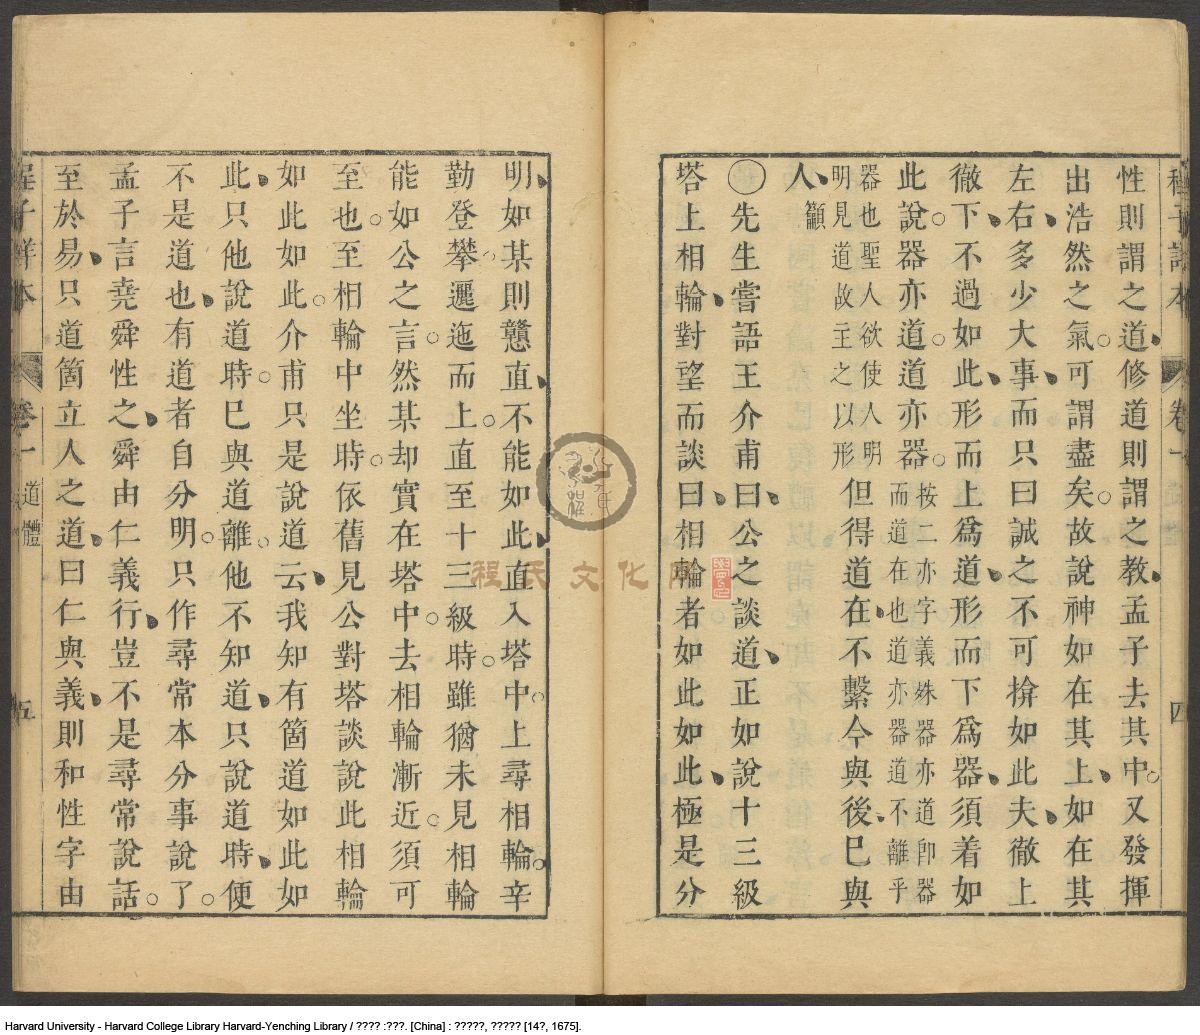 性則謂之道修道則謂之教孟子去其中又發揮
出浩然之氣可謂盡矣故說神如在其上如在其
左右多少大事而只曰誠之不可揜如此夫徹上
徹下不過如此形而上爲道形而下爲器須着如
此說器亦道道亦器按二亦字義姝器亦道卽器
而道在也道亦器道不離乎
器也聖人欲使人明
明見道故主之以形但得道在不繫今與後已與
人籲
○先生嘗語王介甫曰公之談道正如說十三級
塔上相輪對望而談曰相輪者如此如此極是分
明如某則戇直不能如此直入塔中上尋相輪辛
勤登攀邐迤而上直至十三級時雖猶未見相輪
能如公之言然某却實在塔中去相輪漸近須可
至也至相輪中坐時依舊見公對塔談說此相輪
如此如此介甫只是說道云我知有箇道如此如
此只他說道時已與道離他不知道只說道時便
不是道也有道者自分明只作尋常本分事說了
孟子言堯舜性之舜由仁義行豈不是尋常說話
至於易只道箇立人之道曰仁與義則和性字由
程子詳本 卷一 道體 五
程子詳本 卷一 四
程氏文化
Harvard University - Harvard College Library Harvard-Yenching Library / ???? :???. [China] : ?????, ????? [14?, 1675].